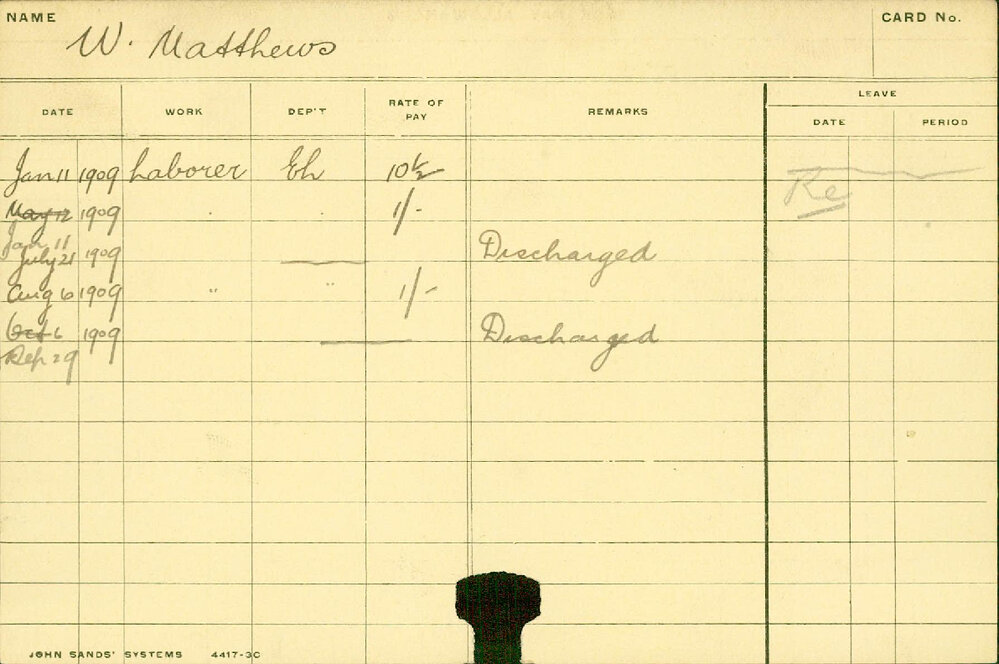 NAME W. Matthews CARD No.
LEAVE
DATE WORK DEP'T RATE OF PAY REMARKS DATE PERIOD
Jan 11 1909 Laborer Eh 10 1/2
May 12 1909 " " 1/- Re
Jan 11
July 21 1909 Discharged
Aug 6 1909 " " 1/-
Oct 6 1909 Discharged
Sep 29
JOHN SANDS' SYSTEMS 4417-3C